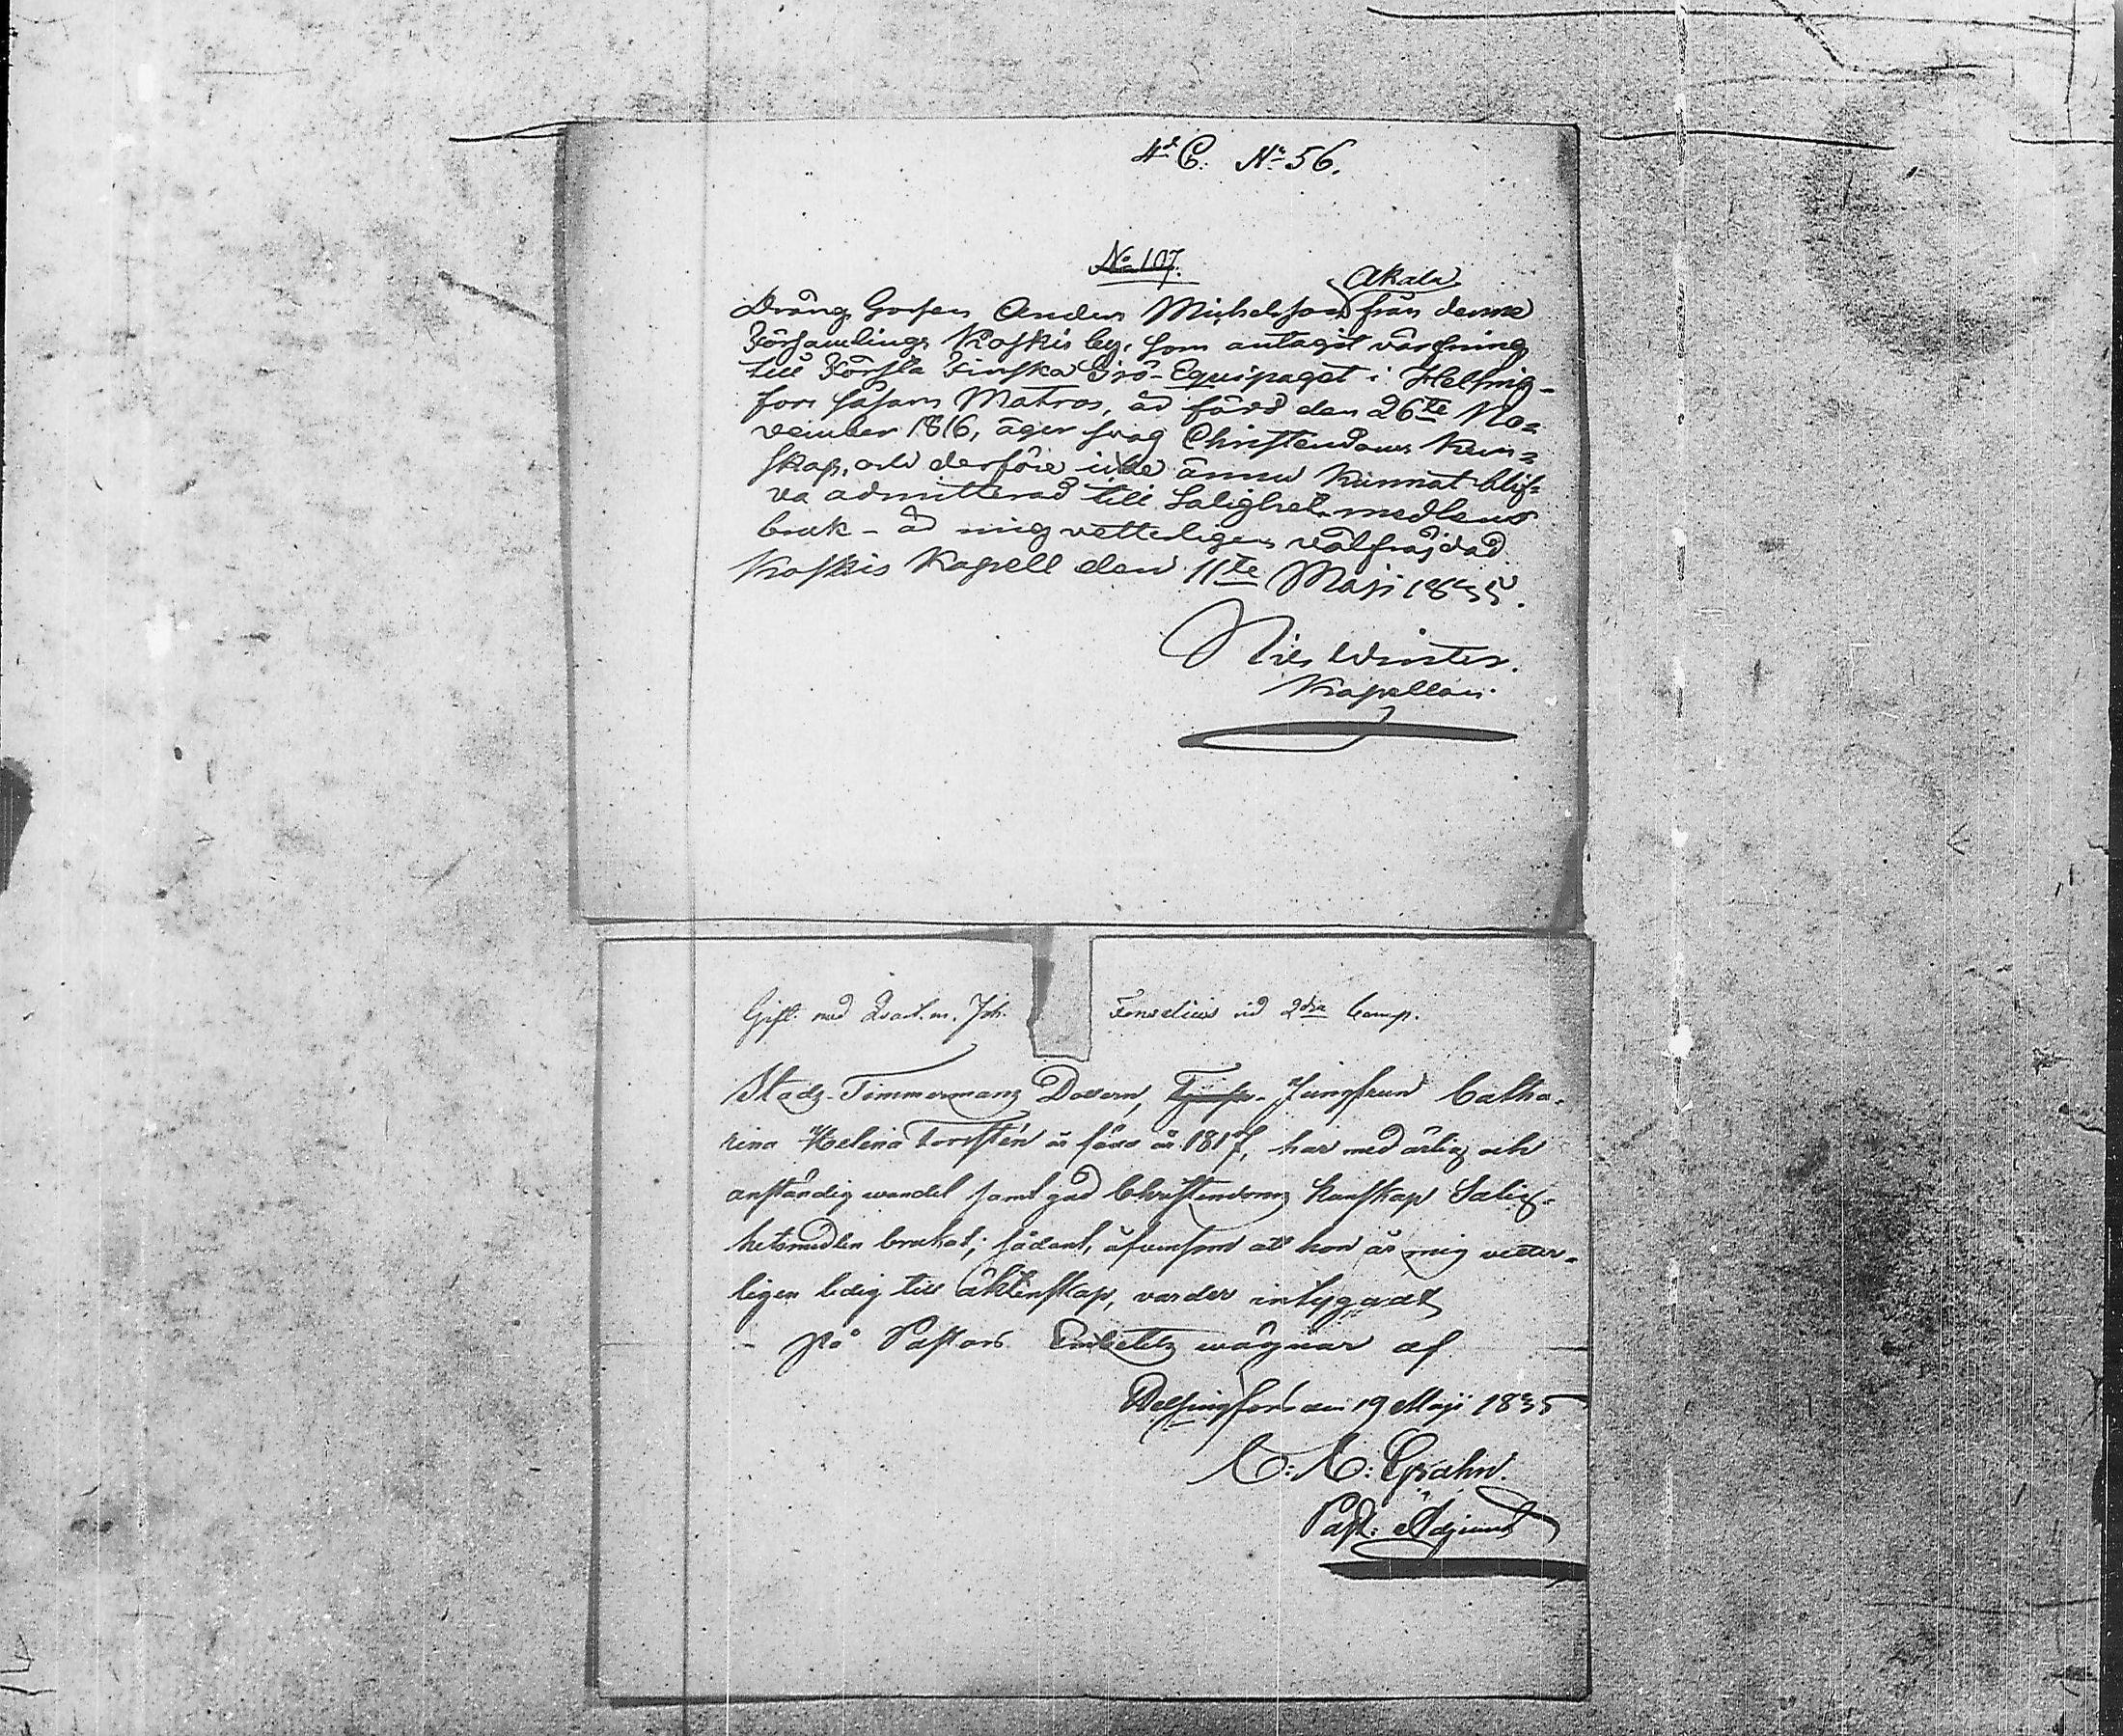 4de C. No 56.
No 107.
Akala
Dräng Gossen Anders Michelsson från denne
Församlings Koskis by, som antagit värfning
till Första Finska Sjö-Equipaget i Helsing-
fors såsom Matros, är född den 26te No=
vember 1816, äger svag Christendoms Kun=
skap, och derföre icke ännu kunnat blif=
va admitterad till Salighets medlens
bruk - är mig vetterligen välfräjdad.
Koskis Kapell den 11te Maji 1835.
Nils Winter.
Kapellan.
Gift med Qvart.m. Joh. Fonselius vid 2dra Comp.
Stads-Timmermans Dottern, Jungfrun Catha-
rina Helena Torsten är född år 1817, har med ärlig och
anständig wandel samt god Christendoms Kunskap Salig-
hetsmedlen brukat; sådant, äfvensom att hon är mig vetter-
ligen ledig till äktenskap, varder intygadt
på Pastors Embetets wägnar af
Helsingfors den 19 Maji 1835
C: A: Grahn.
Past: Adjunct